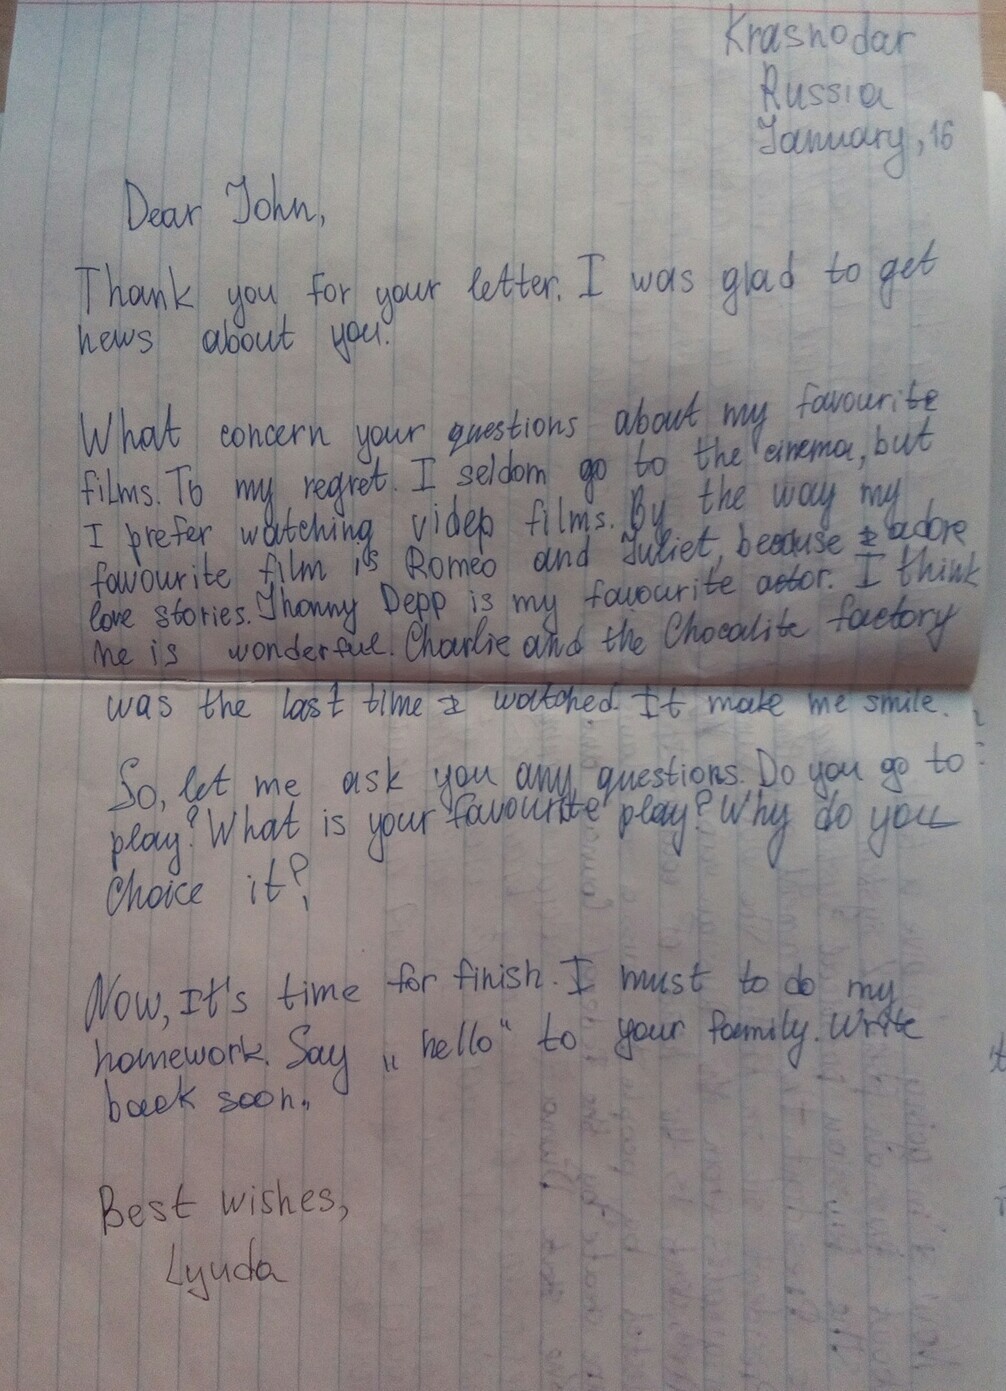 Krasnodar
Russia
January, 16
Dear John,
Thank you for your letter. I was glad to get
news about you.
What concern your questions about my favourite
films. To my regret. I seldom go to the cinema, but
I prefer watching videp films. By the way my
favourite film is Romeo and Juliet, because I adore
love stories. Jhonny Depp is my favourite actor. I think
he is wonderful. Charlie and the Chocalite factory
was the last time I watched. It make me smile.
So, let me ask you any questions. Do you go to
play? What is your favourite play? Why do you
choice it?
Now, It's time for finish. I must to do my
homework. Say „hello“ to your family. Write
back soon.
Best wishes,
Lyuda